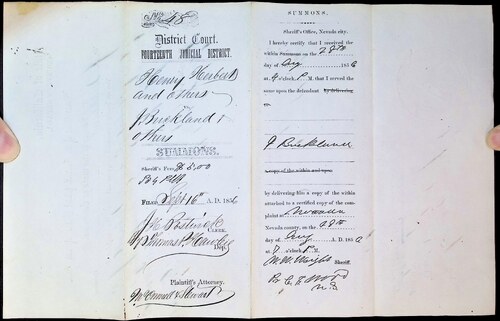 No 48
District Court.
FOURTEENTH JUDICIAL DISTRICT.
Henry Herbert
and others
J Buckland &
others
SUMMONS.
Sheriff's Fees $5.00
FILED Sept 16th A. D. 1856
J H Bostwick
CLERK.
By Thomas P. Hawley
Plaintiff's Attorney.
McConnell & Stewart
SUMMONS.
Sheriff's Office, Nevada city.
I hereby certify that I received the
within Summons on the 28th
day of Aug 1856
at 4 o'clock P. M. that I served the
same upon the defendant by delivering
to.
J Buckland
a copy of the within and upon.
by delivering to a copy of the within
attached to a certified copy of the complaint at Nevada
Nevada county, on the 28th
day of Aug A. D. 1856
at o'clock P. M.
W. W. Wright Sheriff.